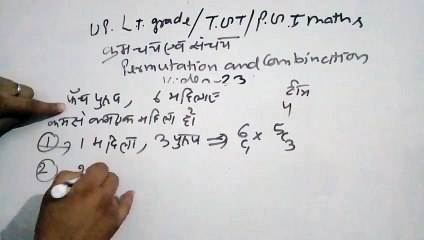 UP. L.T. grade/T.G.T/P.S.I maths
क्रमचय एवं संचय
Permutation and Combination
Video-23
पाँच पुरुष, 6 महिलाएं टीम
कमसे कम एक महिला हो 4
① → 1 महिला, 3 पुरुष ⇒ 6C1 × 5C3
②